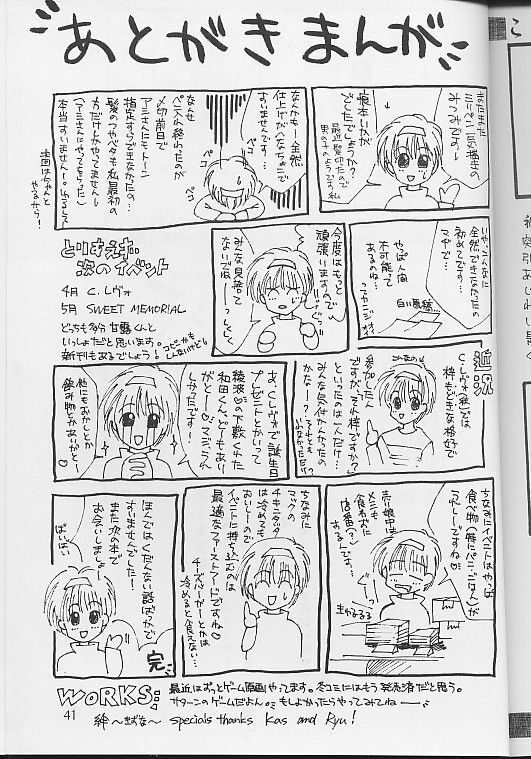 あとがきまんが
またまたの
そこつです〜
娘本いかが
でしたでしょうか?
最近髪切ったので
男の子のようです私
なんかも〜全然
仕上げがへなちょこで
すいませんです…
なんせ
ペン入れ終わったのが
〆切前日で
アミさんにもトーン
指定すらできなかったの…
髪のつやベタも私最初の
本当すいませんー
ペコ
ペコ
次回はちゃんと
やるから!
いやーこんなに
全然できなかったの
初めてです…
マヂで…
やっぱ人間
不可能って
あるのね…
白い原稿…
今度はもっと
頑張りますので
みんな見捨て
ないでね
とりあえず
次のイベント
4月 C.レヴォ
5月 SWEET MEMORIAL
どっちも多分甘露くんと
いっしょだと思います。
新刊もあるでしょう!
コピーかも
しんないけど
近況
C.レヴォ(秋)では
梓もどきな格好で
参加したん
ですが「それ梓ですか?」
といったのは一人だけ…
みんな気付かなかったの
かなー?
あ、C.レヴォで誕生日
プレゼントとかいって
綾波♡の下敷くれた
和田くん、どーもあり
がとー♡マジうれ
しかったです!
他にもおかしとか
飲み物とかありがと!♡
ちなみにイベントにはやっぱ
食べ物(特にパン・ごはん)が
うれしーですね♡
売り娘中は
メシも
食わずに
店番(?)
あるんです…
ちなみに
マックの
チキンナゲット
は冷めても
おいしーので
イベントに持ち込むのは
最適なファーストフードですね♡
チーズバーガーとかは
冷めると食えない…
ほんではくだんない話ばっかで
すいませんでした!
また次の本で
お会いしましょー
ばいばい
完
WORKS
最近はずっとゲーム原画やってます。冬コミにはもう発売済だと思う。
サターンのゲームだよん。もしよかったらやってみてねー
絆〜きずな〜 specials thanks Kas and Ryu!
41